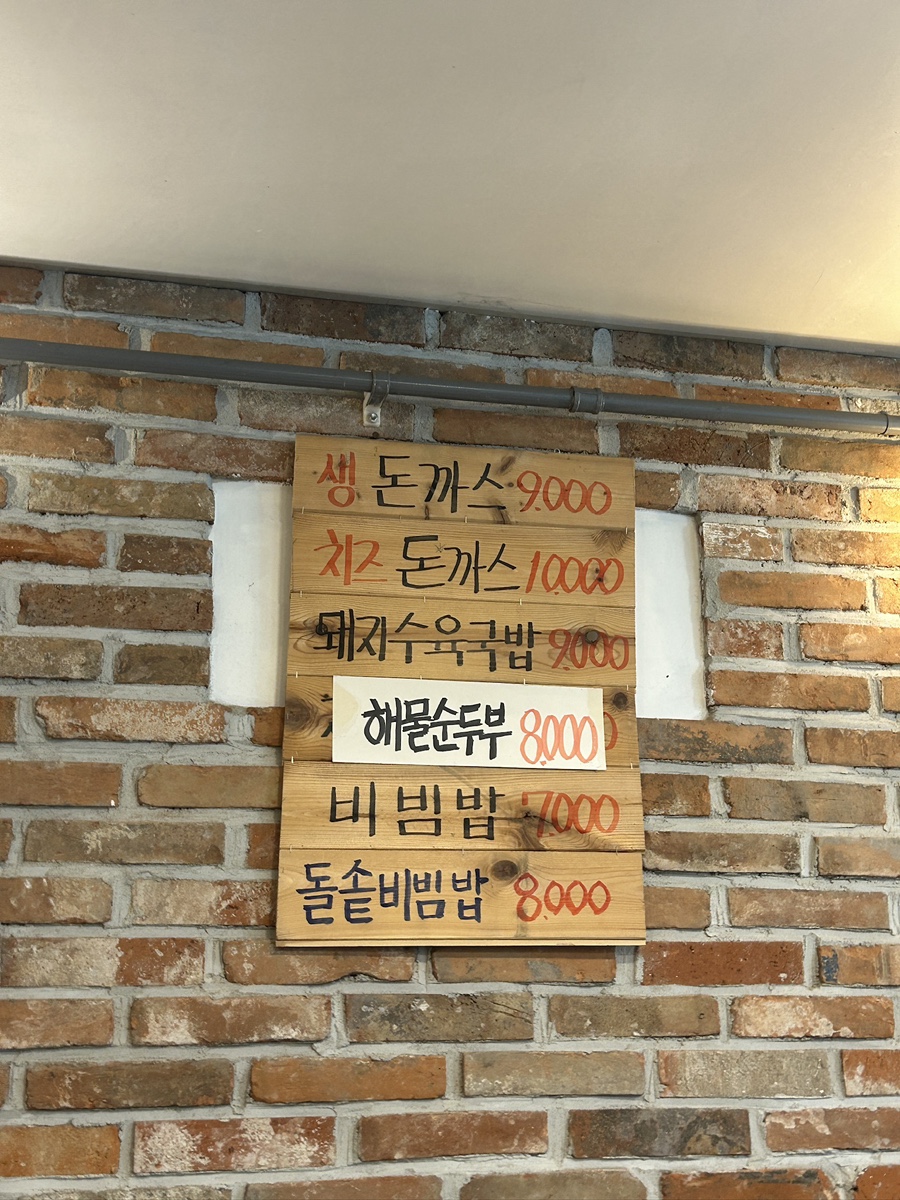 생 돈까스 9.000
치즈 돈까스 10.000
돼지수육국밥 9.000
해물순두부 8.000
비빔밥 7.000
돌솥비빔밥 8.000